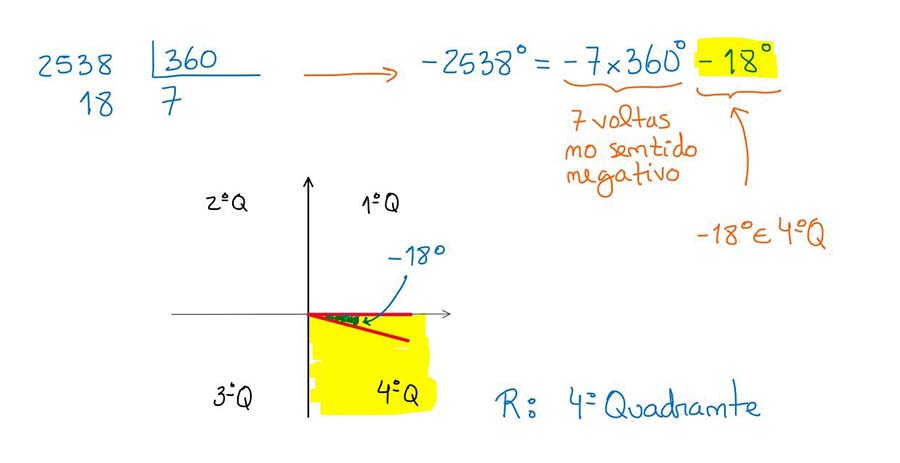 2538 360
18 7
-2538° = -7×360° -18°
7 voltas
no sentido
negativo
-18° ∈ 4ºQ
2ºQ 1ºQ
-18°
3ºQ 4ºQ
R: 4º Quadrante